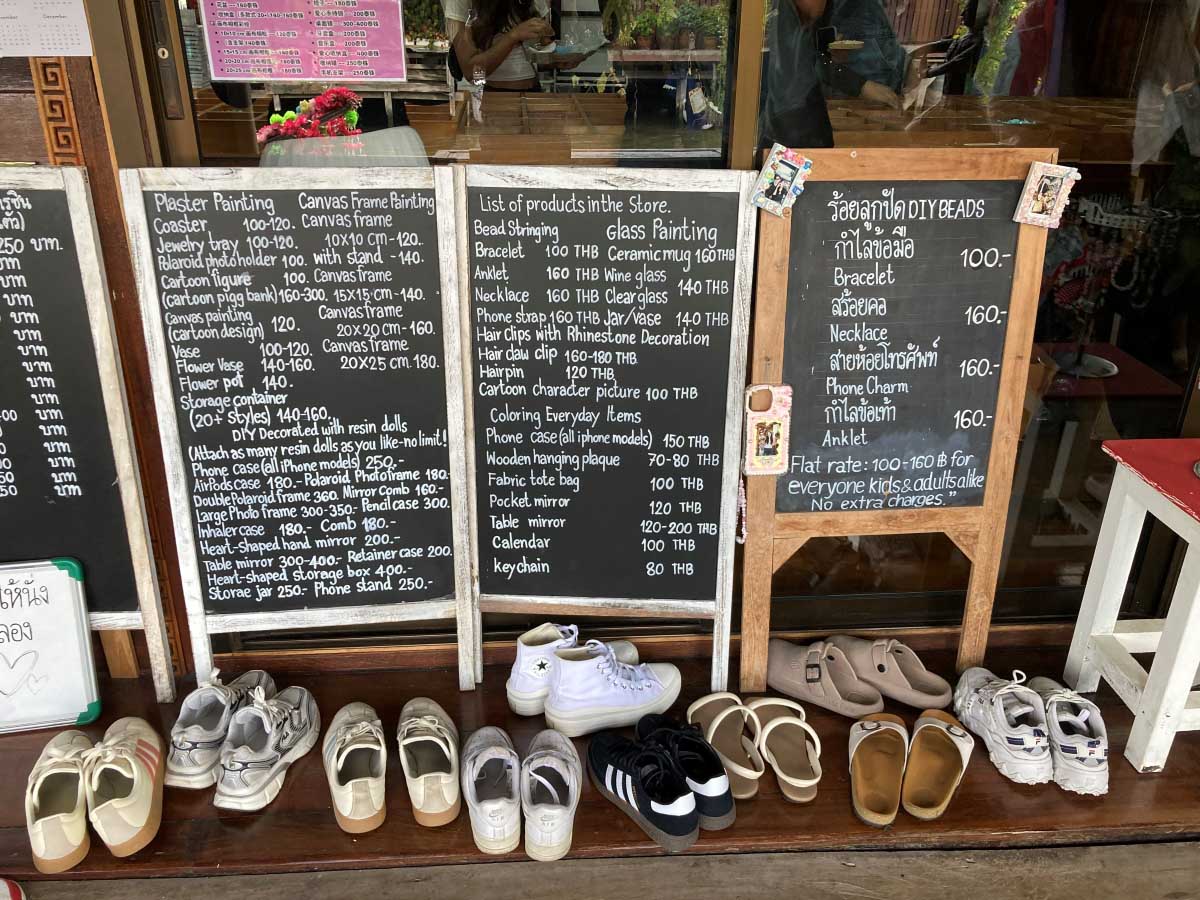 250 บาท.
บาท
บาท
บาท
บาท
บาท
บาท
บาท
บาท
บาท
บาท
บาท
Plaster Painting Canvas Frame Painting
Coaster 100-120. Canvas frame
Jewelry tray 100-120. 10x10 cm-120.
Polaroid photo holder 100. with stand -140.
Cartoon figure Canvas frame
(cartoon pigg bank) 160-300. 15x15 cm.-140.
Canvas painting Canvas frame
(cartoon design) 120. 20x20 cm-160.
Vase 100-120. Canvas frame
Flower Vase 140-160. 20x25 cm.180.
Flower pot 140.
Storage container
(20+ Styles) 140-160.
DIY Decorated with resin dolls
(Attach as many resin dolls as you like-no limit!
Phone case (all iPhone models) 250.-
AirPods case 180.- Polaroid Photoframe 180.-
Double Polaroid frame 360. Mirror comb 160.-
Large Photo frame 300-350.- Pencil case 300.
Inhaler case 180.- Comb 180.-
Heart-shaped hand mirror 200.-
Table mirror 300-400.- Retainer case 200.
Heart-shaped storage box 400.-
Storae jar 250.- Phone stand 250.-
List of products in the Store.
Bead Stringing Glass Painting
Bracelet 100 THB Ceramic mug 160 THB
Anklet 160 THB Wine glass
Necklace 160 THB Clear glass 140 THB
Phone strap 160 THB Jar/vase 140 THB
Hair Clips with Rhinestone Decoration
Hair claw clip 160-180 THB
Hairpin 120 THB
Cartoon character picture 100 THB
Coloring Everyday Items
Phone case (all iphone models) 150 THB
Wooden hanging plaque 70-80 THB
Fabric tote bag 100 THB
Pocket mirror 120 THB
Table mirror 120-200 THB
Calendar 100 THB
keychain 80 THB
ร้อยลูกปัด DIY BEADS
กำไลข้อมือ 100.-
Bracelet
สร้อยคอ 160.-
Necklace
สายห้อยโทรศัพท์ 160.-
Phone Charm
กำไลข้อเท้า 160.-
Anklet
Flat rate: 100-160 ฿ for
everyone kids & adults alike
No extra charges."